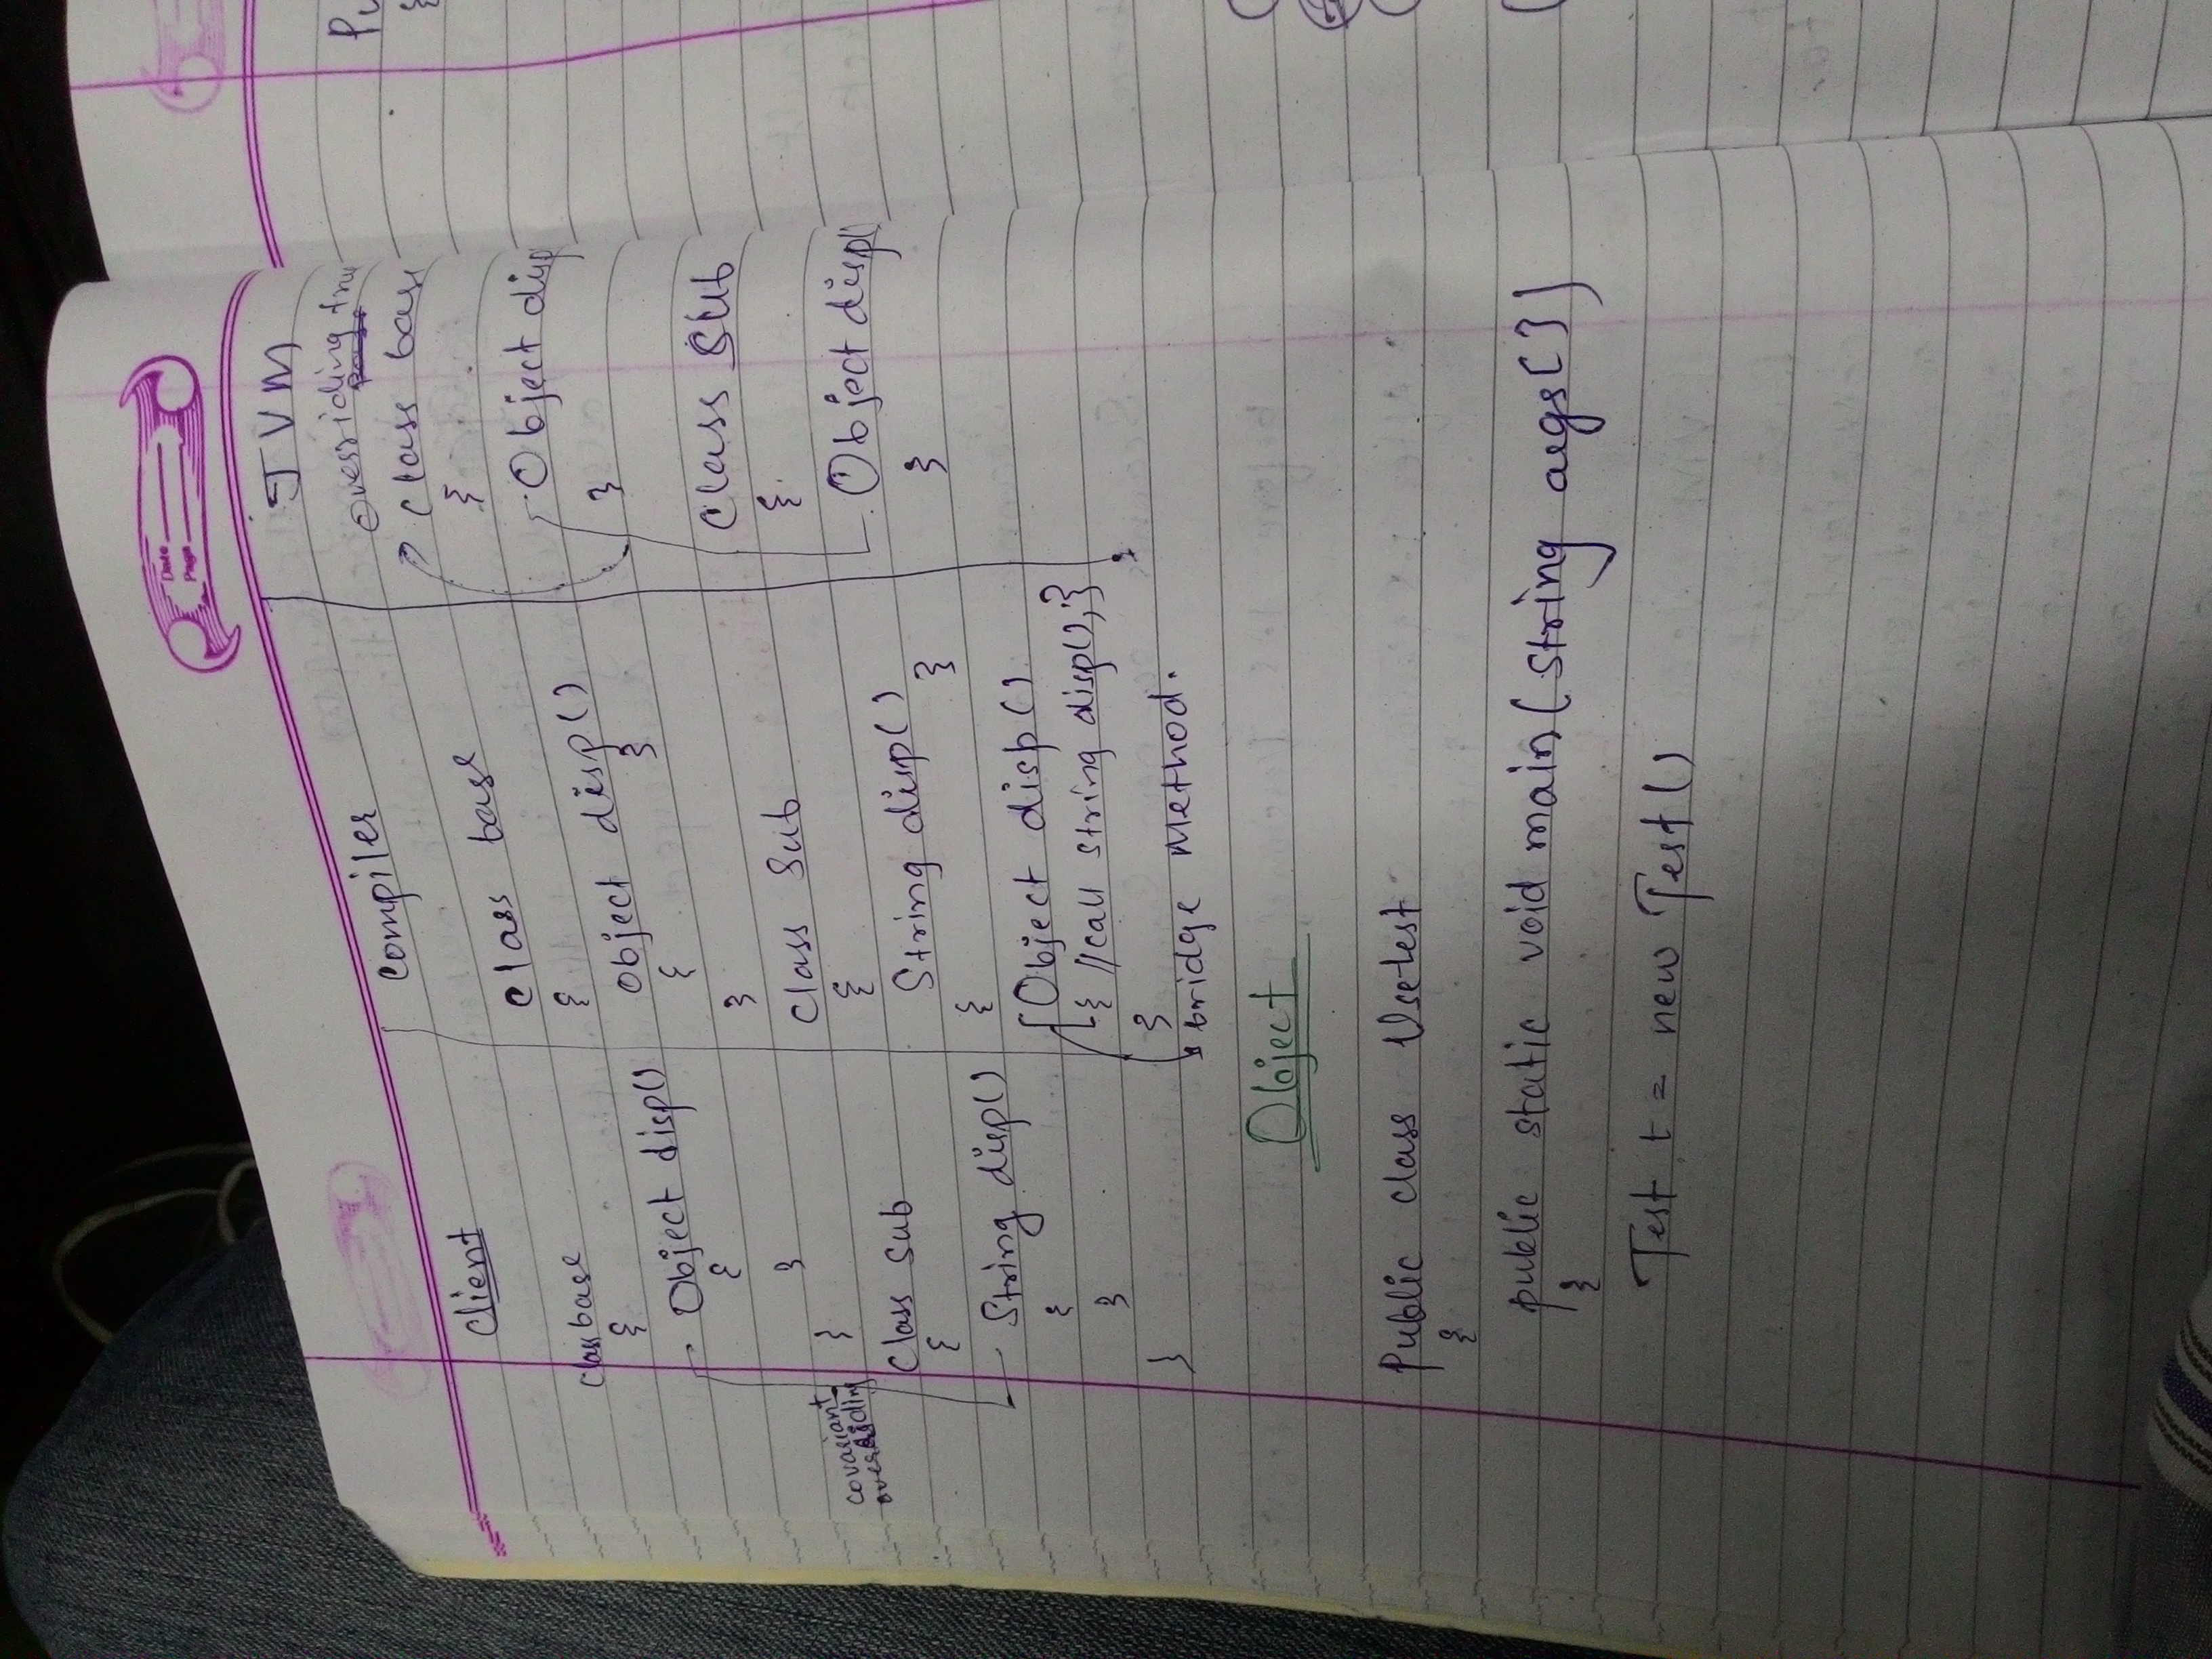 Date
Page
Client
class base
{
Object disp()
{
}
}
covariant
overriding
Class Sub
{
String disp()
{
}
}
Compiler
Class base
{
Object disp()
{ }
}
Class Sub
{
String disp()
{ }
Object disp()
{ //call string disp(); }
}
bridge Method.
JVM
Overriding true
Class base
{
Object disp
}
Class Sub
{
Object disp(
}
Object
Public class Usetest
{
public static void main(String args[])
{
Test t = new Test()